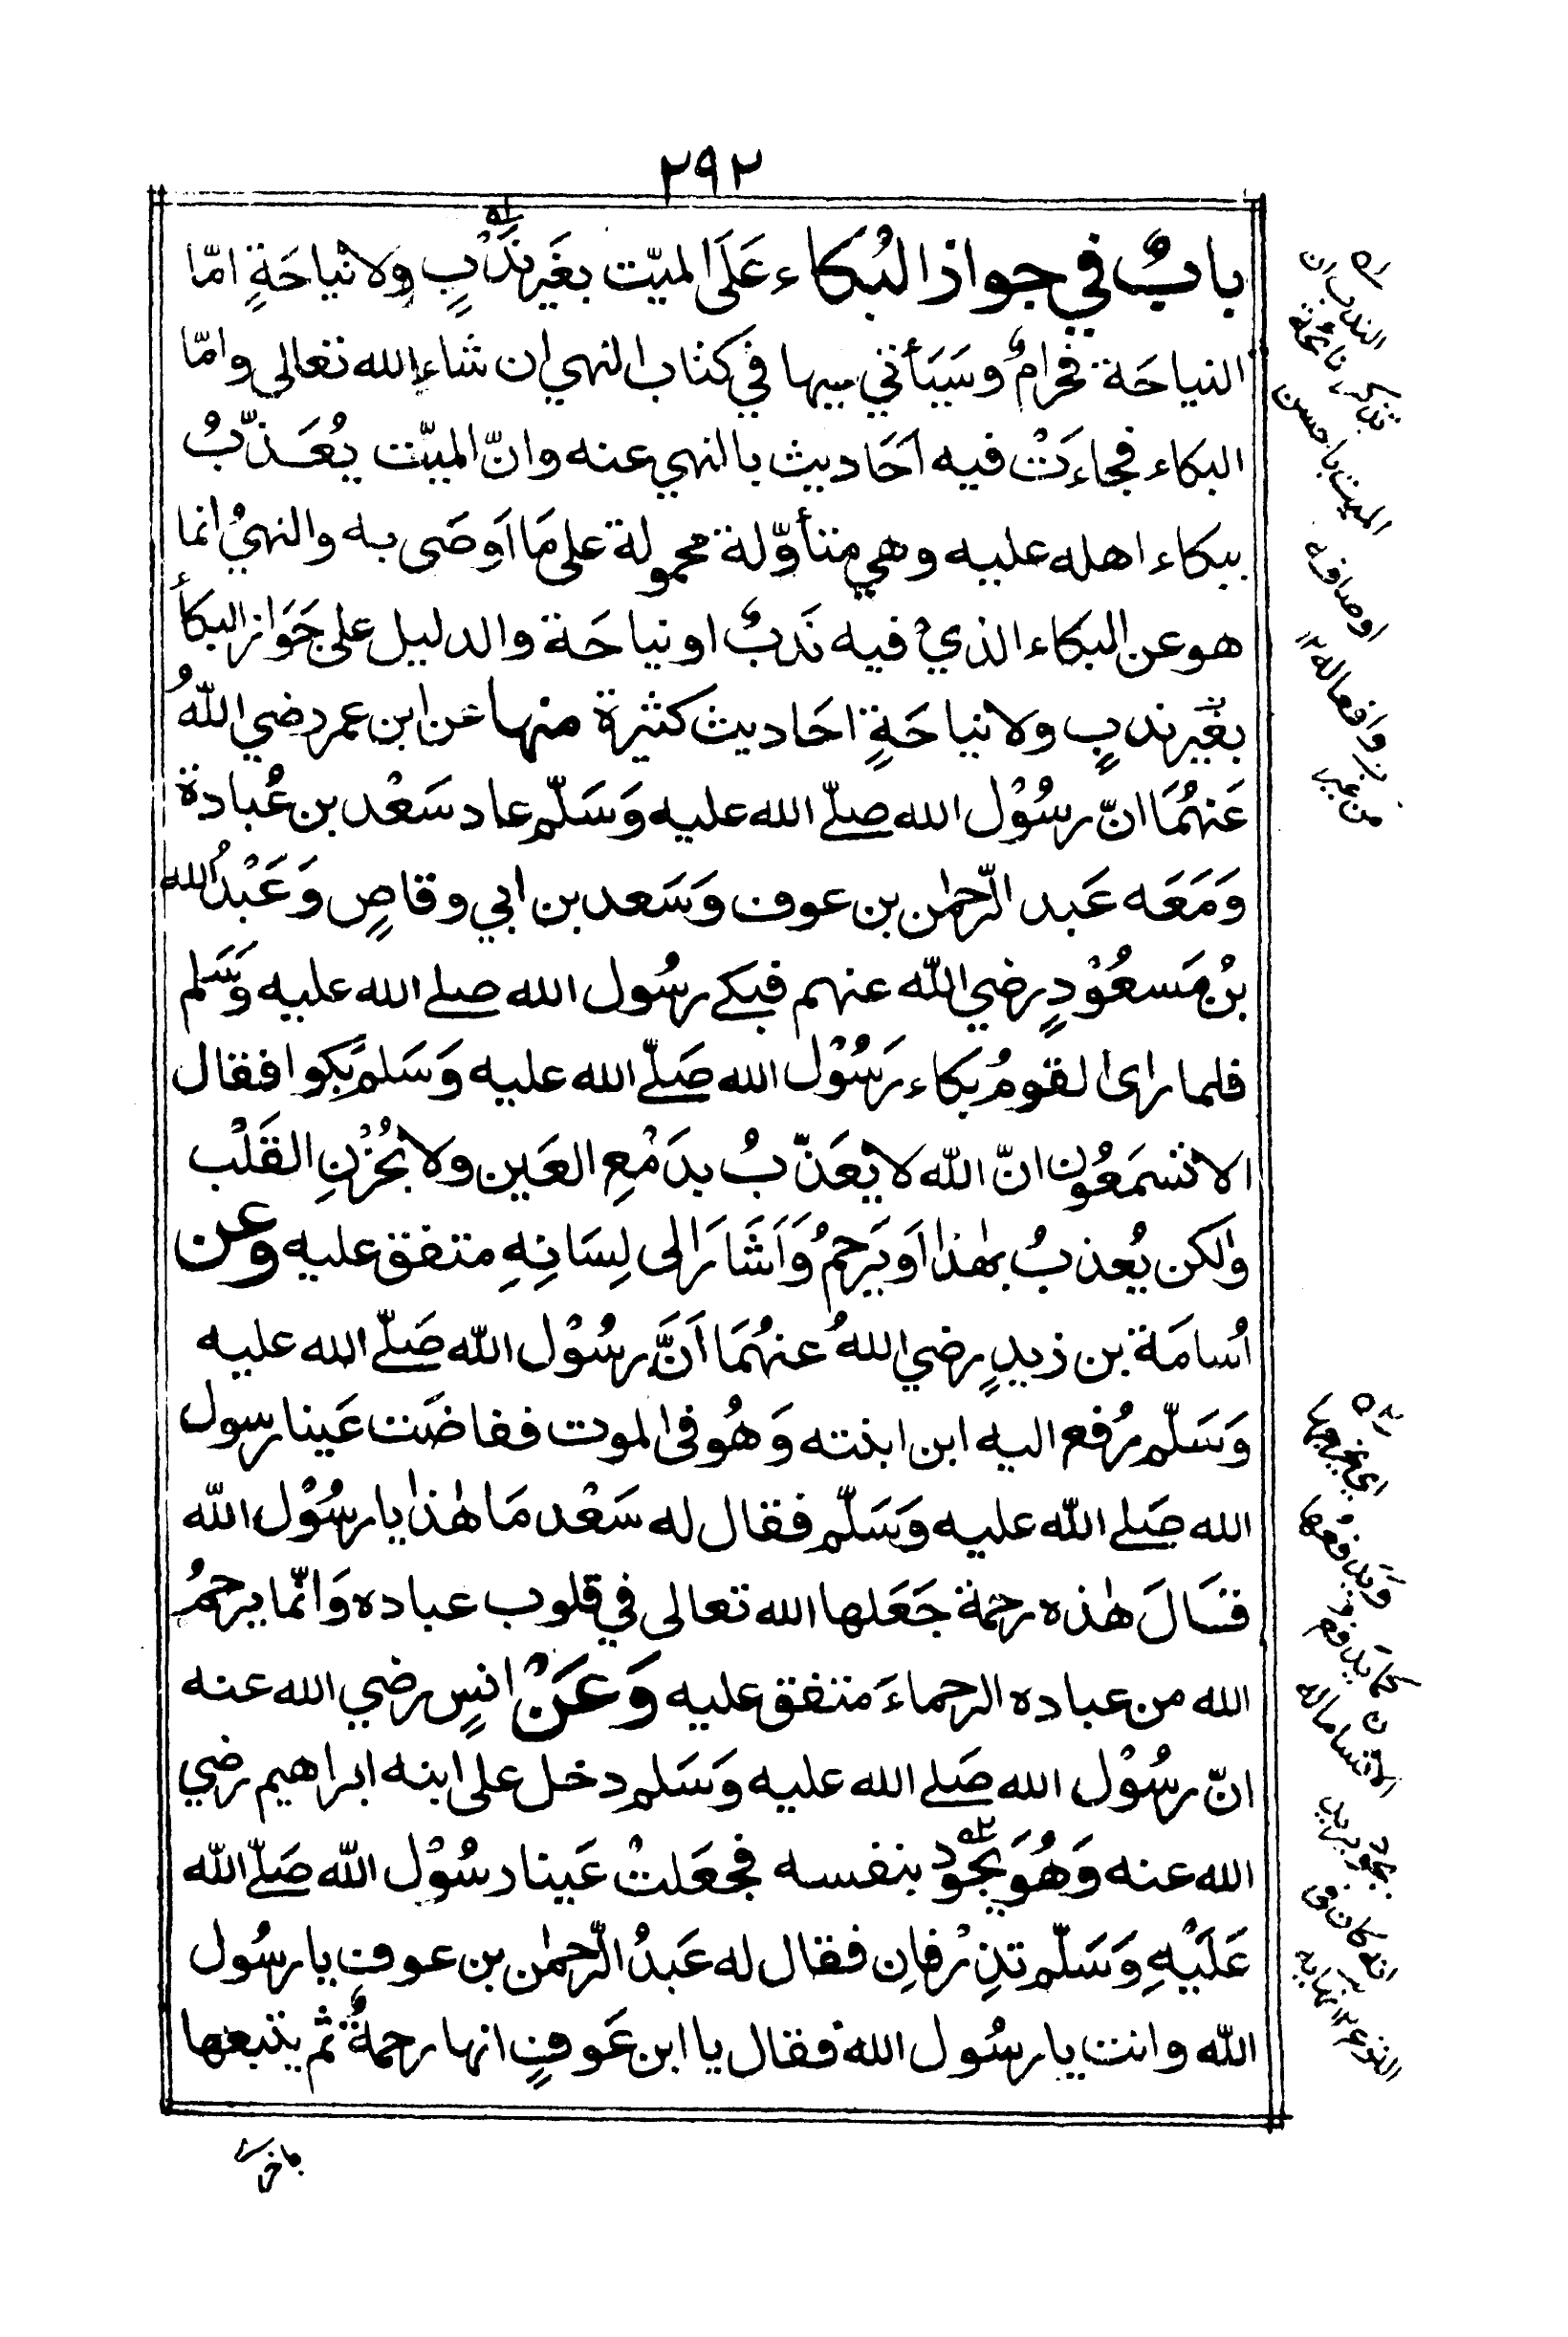 ٢٩٢
بابٌ في جواز البُكاء عَلَى الميّت بغَير نَدْبٍ ولا نياحَةٍ امّا
النياحَة فحرامٌ وسَيَأتي فيها في كتاب النهي ان شاء الله تعالى وامّا
البكاء فجاءَتْ فيه اَحَاديث بالنهي عنه وانّ الميّت يُعَذّبُ
ببكاء اهله عليه وهي متأوّلة محمولة على مَا اَوصَى به والنهيُ انما
هو عن البكاء الذيْ فيه نَدبٌ او نياحَة والدليل على جَوَاز البكأ
بغَير ندبٍ ولا نياحَةٍ احَاديث كثيرة منها عن ابن عمر رضي اللّهُ
عَنهُمَا انّ رسُوْل الله صلّے الله عليه وَسَلّم عاد سَعْد بن عُبادة
وَمَعَه عَبد الرّحمٰن بن عوف وَسَعد بن ابي وقاصٍ وَعَبْدُ الله
بْنُ مَسعُوْدٍ رضي اللّه عنهم فبكے رسُول الله صلے الله عليه وَسَلم
فلما راى القومُ بكاء رَسُوْل الله صَلّے الله عليه وَسَلمَ بَكوا فقال
الا تسمَعُون انّ اللّه لا يُعَذّبُ بدَمْعِ العَين ولا بحُزْنِ القَلْب
ولٰكن يُعذبُ بهٰذا اَو يَرحمُ وَاَشَارَ الى لِسَانِهِ متفق عليه وعن
اُسامَة بن زيدٍ رضي اللهُ عنهُمَا اَنَّ رسُوْل اللّه صَلّے الله عليه
وَسَلّم رُفع اليه ابن ابنته وَهُو فى الموت ففاضَت عَينا رسول
الله صَلے اللّه عليه وَسَلّم فقال له سَعْد مَا هٰذا يا رسُوْل اللّه
قالَ هٰذه رحمة جَعَلها الله تعالى في قلوب عباده وَانّما يرحمُ
الله من عباده الرحماءَ متفق عليه وَعَنْ انسٍ رضي الله عنه
انّ رسُوْل الله صَلے الله عليه وَسَلم دخل على ابنه ابراهيم رضي
الله عنه وَهُوَ يجُوْد بنفسه فجعَلتْ عَينا رسُوْل اللّه صَلّے اللّه
عَلَيْهِ وَسَلّم تذِرْفانِ فقال له عَبدُ الرّحمٰن بن عوف يا رسُول
اللّه وانت يا رسُول الله فقال يا ابن عَوفٍ انها رحمةٌ ثم يتبعها
باخرى
الندب ان
تذكر نائحة
الميت باحسن
اوصافه
وافعاله ١٢
من غير
اي يخرجها
ويدفعها
كما يدفع
الانسان ماله
يجود به يريد
انه كان في
النزع ١٢ نهاية